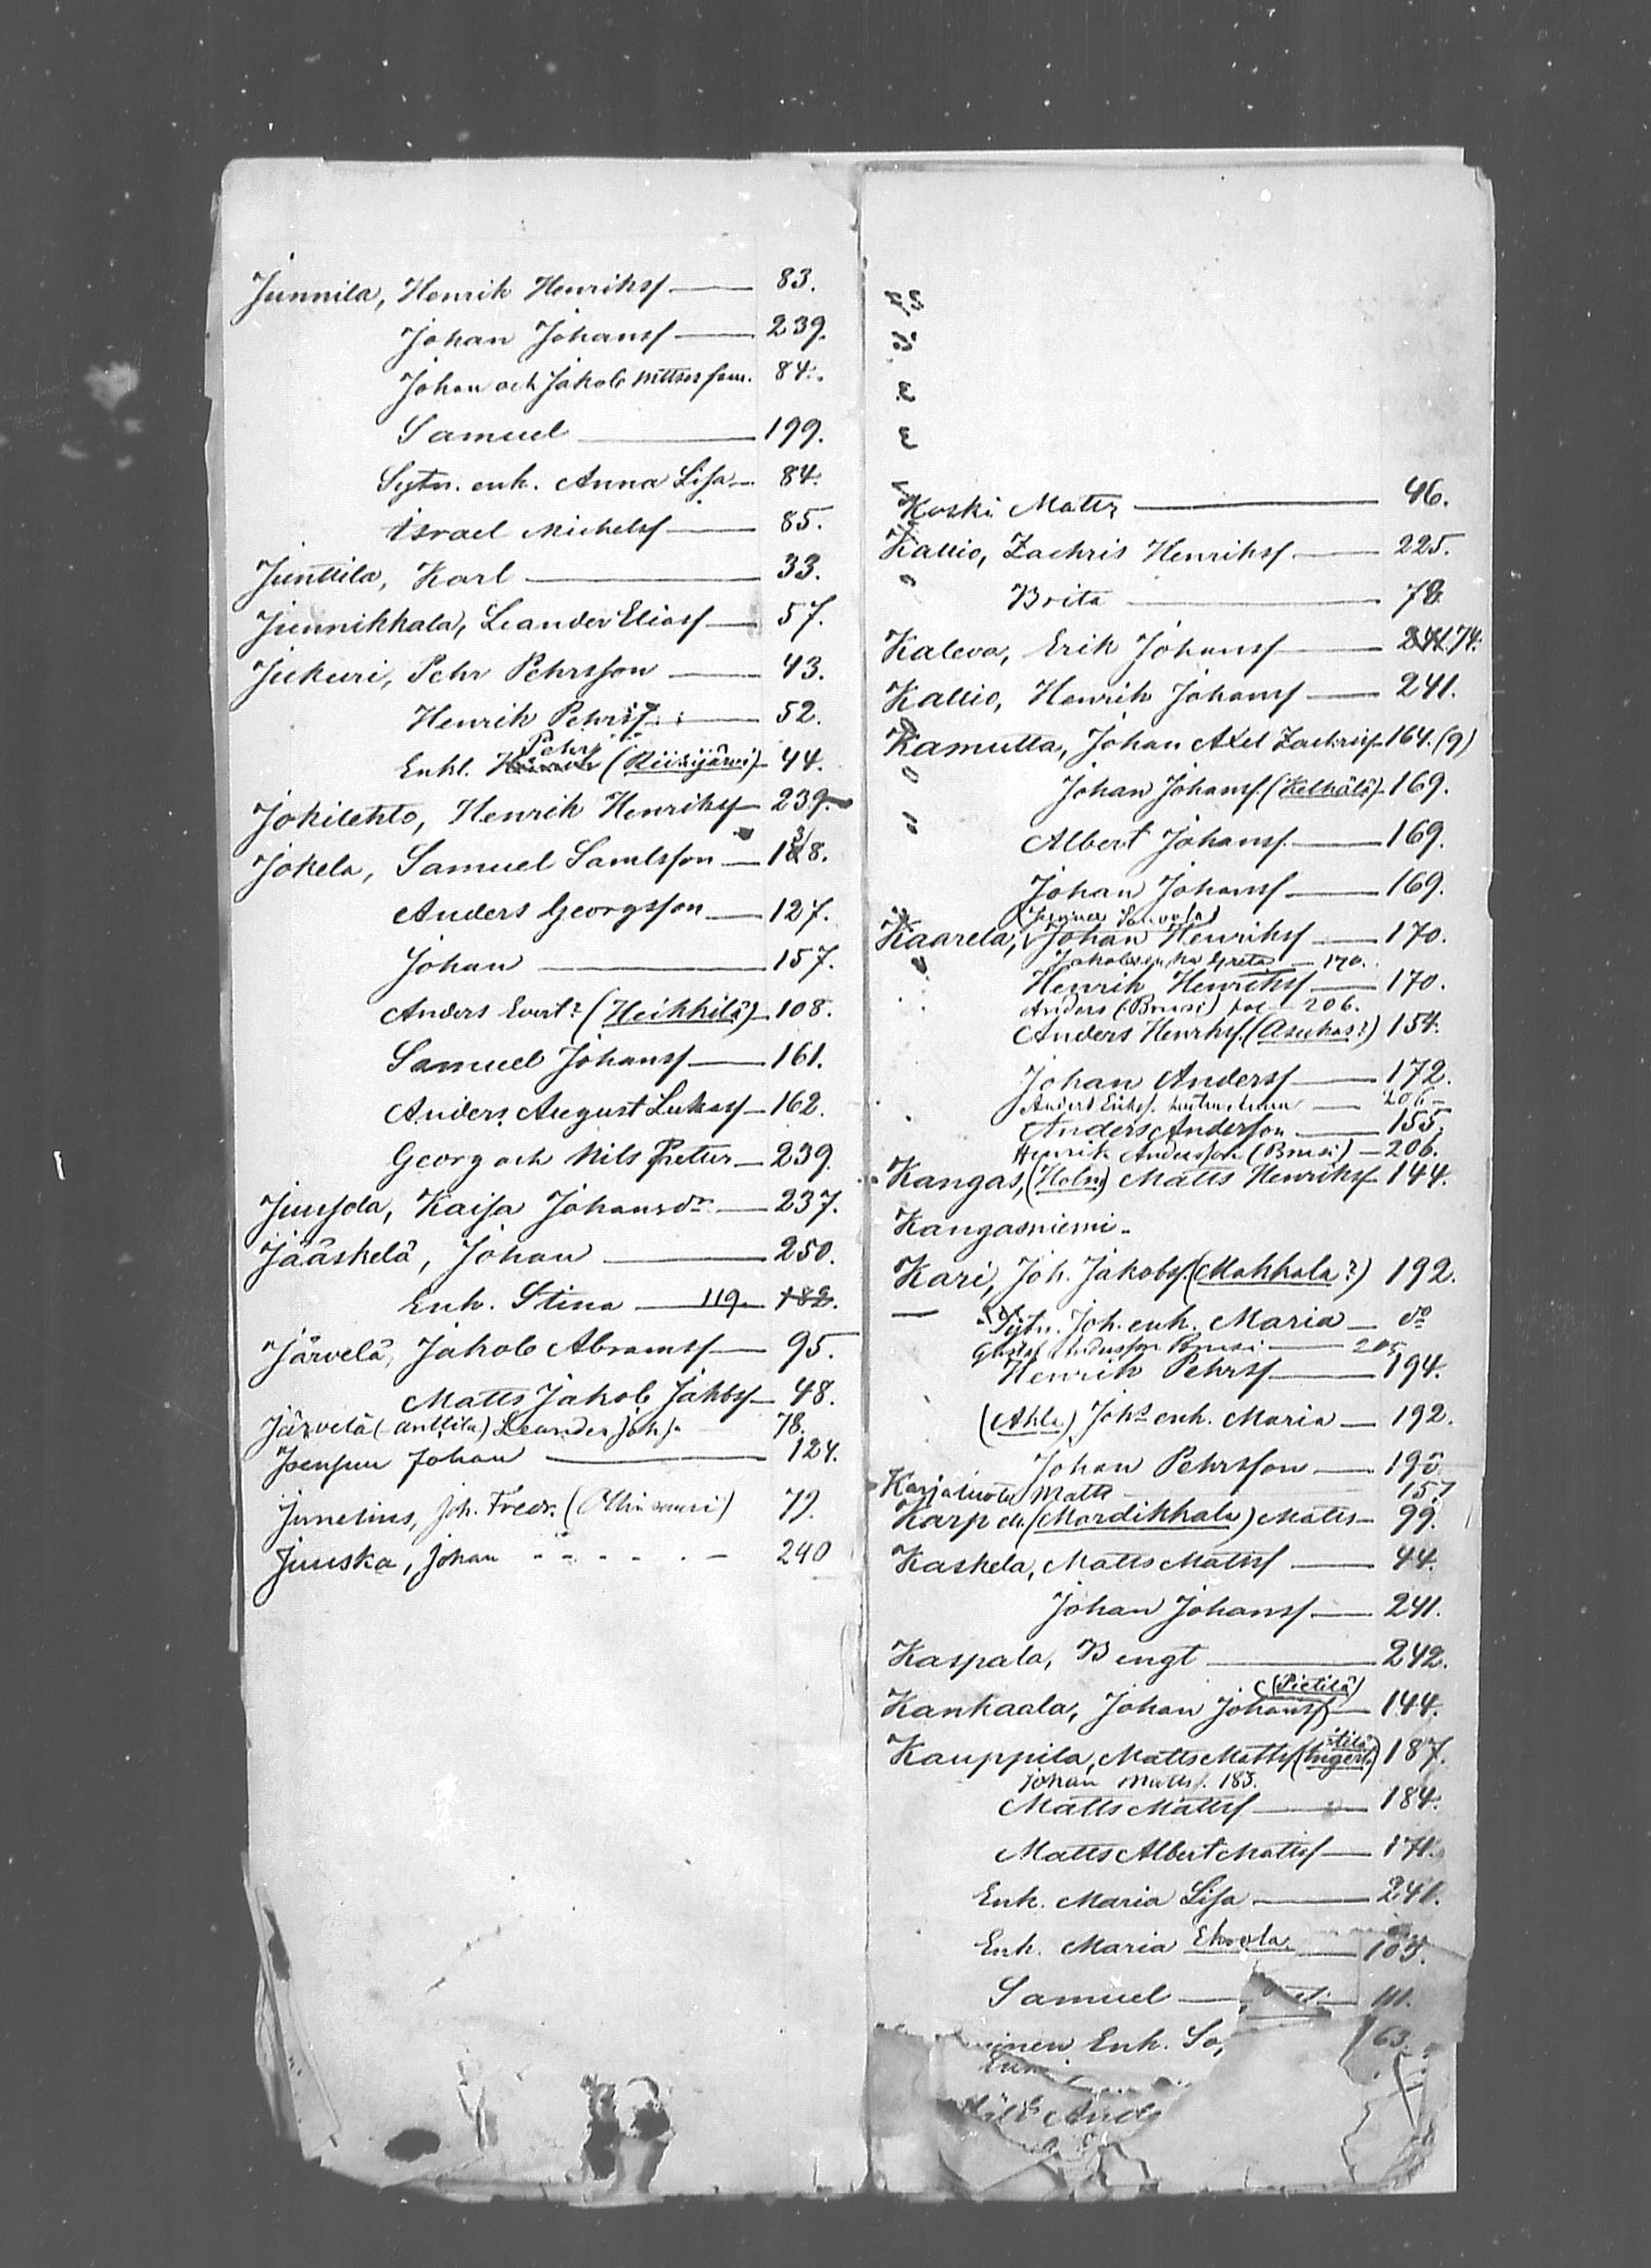 Junnila, Henrik Henriksf — 83.
Johan Johansf — 239.
Johan och Jakob Mttss fam. 84.
Samuel — 199.
Sytn. enk. Anna Lisa — 84.
Israel Michelsf — 85.
Junttila, Karl — 33.
Junnikkala, Leander Eliasf — 57.
Jukuri, Pehr Pehrsson — 43.
Henrik Pehrsf — 52.
Pehr
Enkl. (Riisijärvi) 44.
Jokilehto, Henrik Henriksf — 239.
Jokela, Samuel Samlsson — 138.
Anders Georgsson — 127.
Johan — 157.
Anders Evert? (Heikkilä) — 108.
Samuel Johansf — 161.
Anders August Lukasf — 162.
Georg och Nils Petter — 239.
Juusola, Kaisa Johansdr — 237.
Jääskelä, Johan — 250.
Enk. Stina — 119. 182.
Järvelä, Jakob Abramsf — 95.
Matts Jakob Jakbsf — 48.
Järvelä (Anttila) Leander Joh.s. 78.
Joensuu Johan — 124.
Junelius, Joh. Fredr. 79.
Juuska, Johan - - - - - 240
Koski Matts — 46.
Kallio, Zachris Henriksf — 225.
Brita — 78.
Kaleva, Erik Johansf — 241. 74.
Kallio, Henrik Johansf — 241.
Kamutta, Johan Axel Zachrisf 164. (9)
Johan Johansf. (Kelhälä) 169.
Albert Johansf. — 169.
Johan Johansf — 169.
Kaarela, Johan Henriksf — 170.
Greta — 170.
Henrik Henriksf — 170.
Anders (Brusi) — 206.
Anders Henrksf. (Asukas?) 154.
Johan Andersf — 172.
Anders Eriksf. — 206 —
Anders Anderson — 155.
Henrik Andersson (Brusi) — 206.
Kangas, (Holm) Matts Henriksf 144.
Kangasniemi -
Kari, Joh. Jakobsf. (Mahkala?) 192.
— Sytn. Joh. enk. Maria — do
Gustaf Andersson Brusi — 205
Henrik Pehrsf — 194.
(Ahla) Johs enk. Maria — 192.
Johan Pehrsson — 190
Karjaluoto Matts 157
Karp (Mardikkala) Matts — 99.
Kaskela, Matts Mattsf — 44.
Johan Johansf — 241.
Kaspala, Bengt — 242.
(Pietilä)
Kankaala, Johan Johansf — 144.
Kauppila, Matts Mattsf. 187.
Johan Mattsf. 183.
Matts Mattsf — 184.
Matts Albert Mattsf — 171.
Enk. Maria Lisa — 241.
Enk. Maria Ekoola — 105.
Samuel — 111.
Enk. 63.